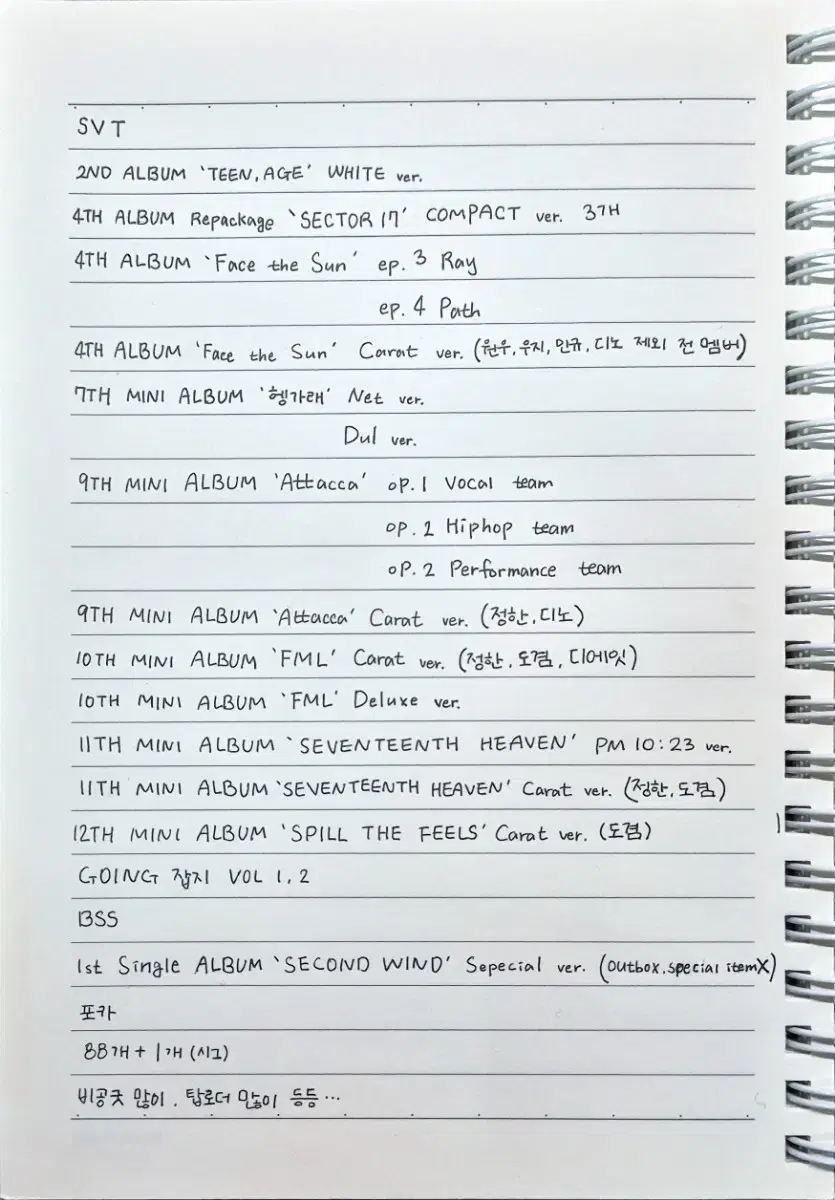 SVT
2ND ALBUM 'TEEN, AGE' WHITE ver.
4TH ALBUM Repackage 'SECTOR 17' COMPACT ver. 3개
4TH ALBUM 'Face the Sun' ep. 3 Ray
ep. 4 Path
4TH ALBUM 'Face the Sun' Carat ver. (원우, 우지, 민규, 디노 제외 전 멤버)
7TH MINI ALBUM '헹가래' Net ver.
Dul ver.
9TH MINI ALBUM 'Attacca' op. 1 Vocal team
op. 2 Hiphop team
op. 2 Performance team
9TH MINI ALBUM 'Attacca' Carat ver. (정한, 디노)
10TH MINI ALBUM 'FML' Carat ver. (정한, 도겸, 디에잇)
10TH MINI ALBUM 'FML' Deluxe ver.
11TH MINI ALBUM 'SEVENTEENTH HEAVEN' PM 10:23 ver.
11TH MINI ALBUM 'SEVENTEENTH HEAVEN' Carat ver. (정한, 도겸)
12TH MINI ALBUM 'SPILL THE FEELS' Carat ver. (도겸)
GOING 잡지 VOL 1, 2
BSS
1st Single ALBUM 'SECOND WIND' Sepecial ver. (outbox, special item X)
포카
88개 + 1개 (시그)
비공굿 많이, 탑로더 많이 등등...